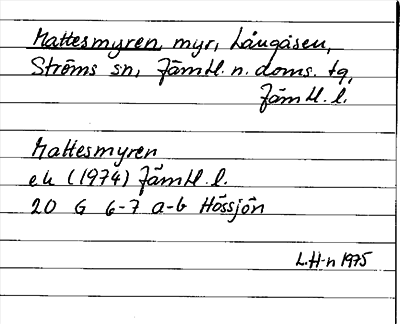 Mattesmyren, myr, Långåsen,
Ströms sn, Jämtl. n. doms. tg,
Jämtl. l.
Mattesmyren
ek (1974) Jämtl. l.
20 G 6-7 a-b Hössjön
L.H-n 1975